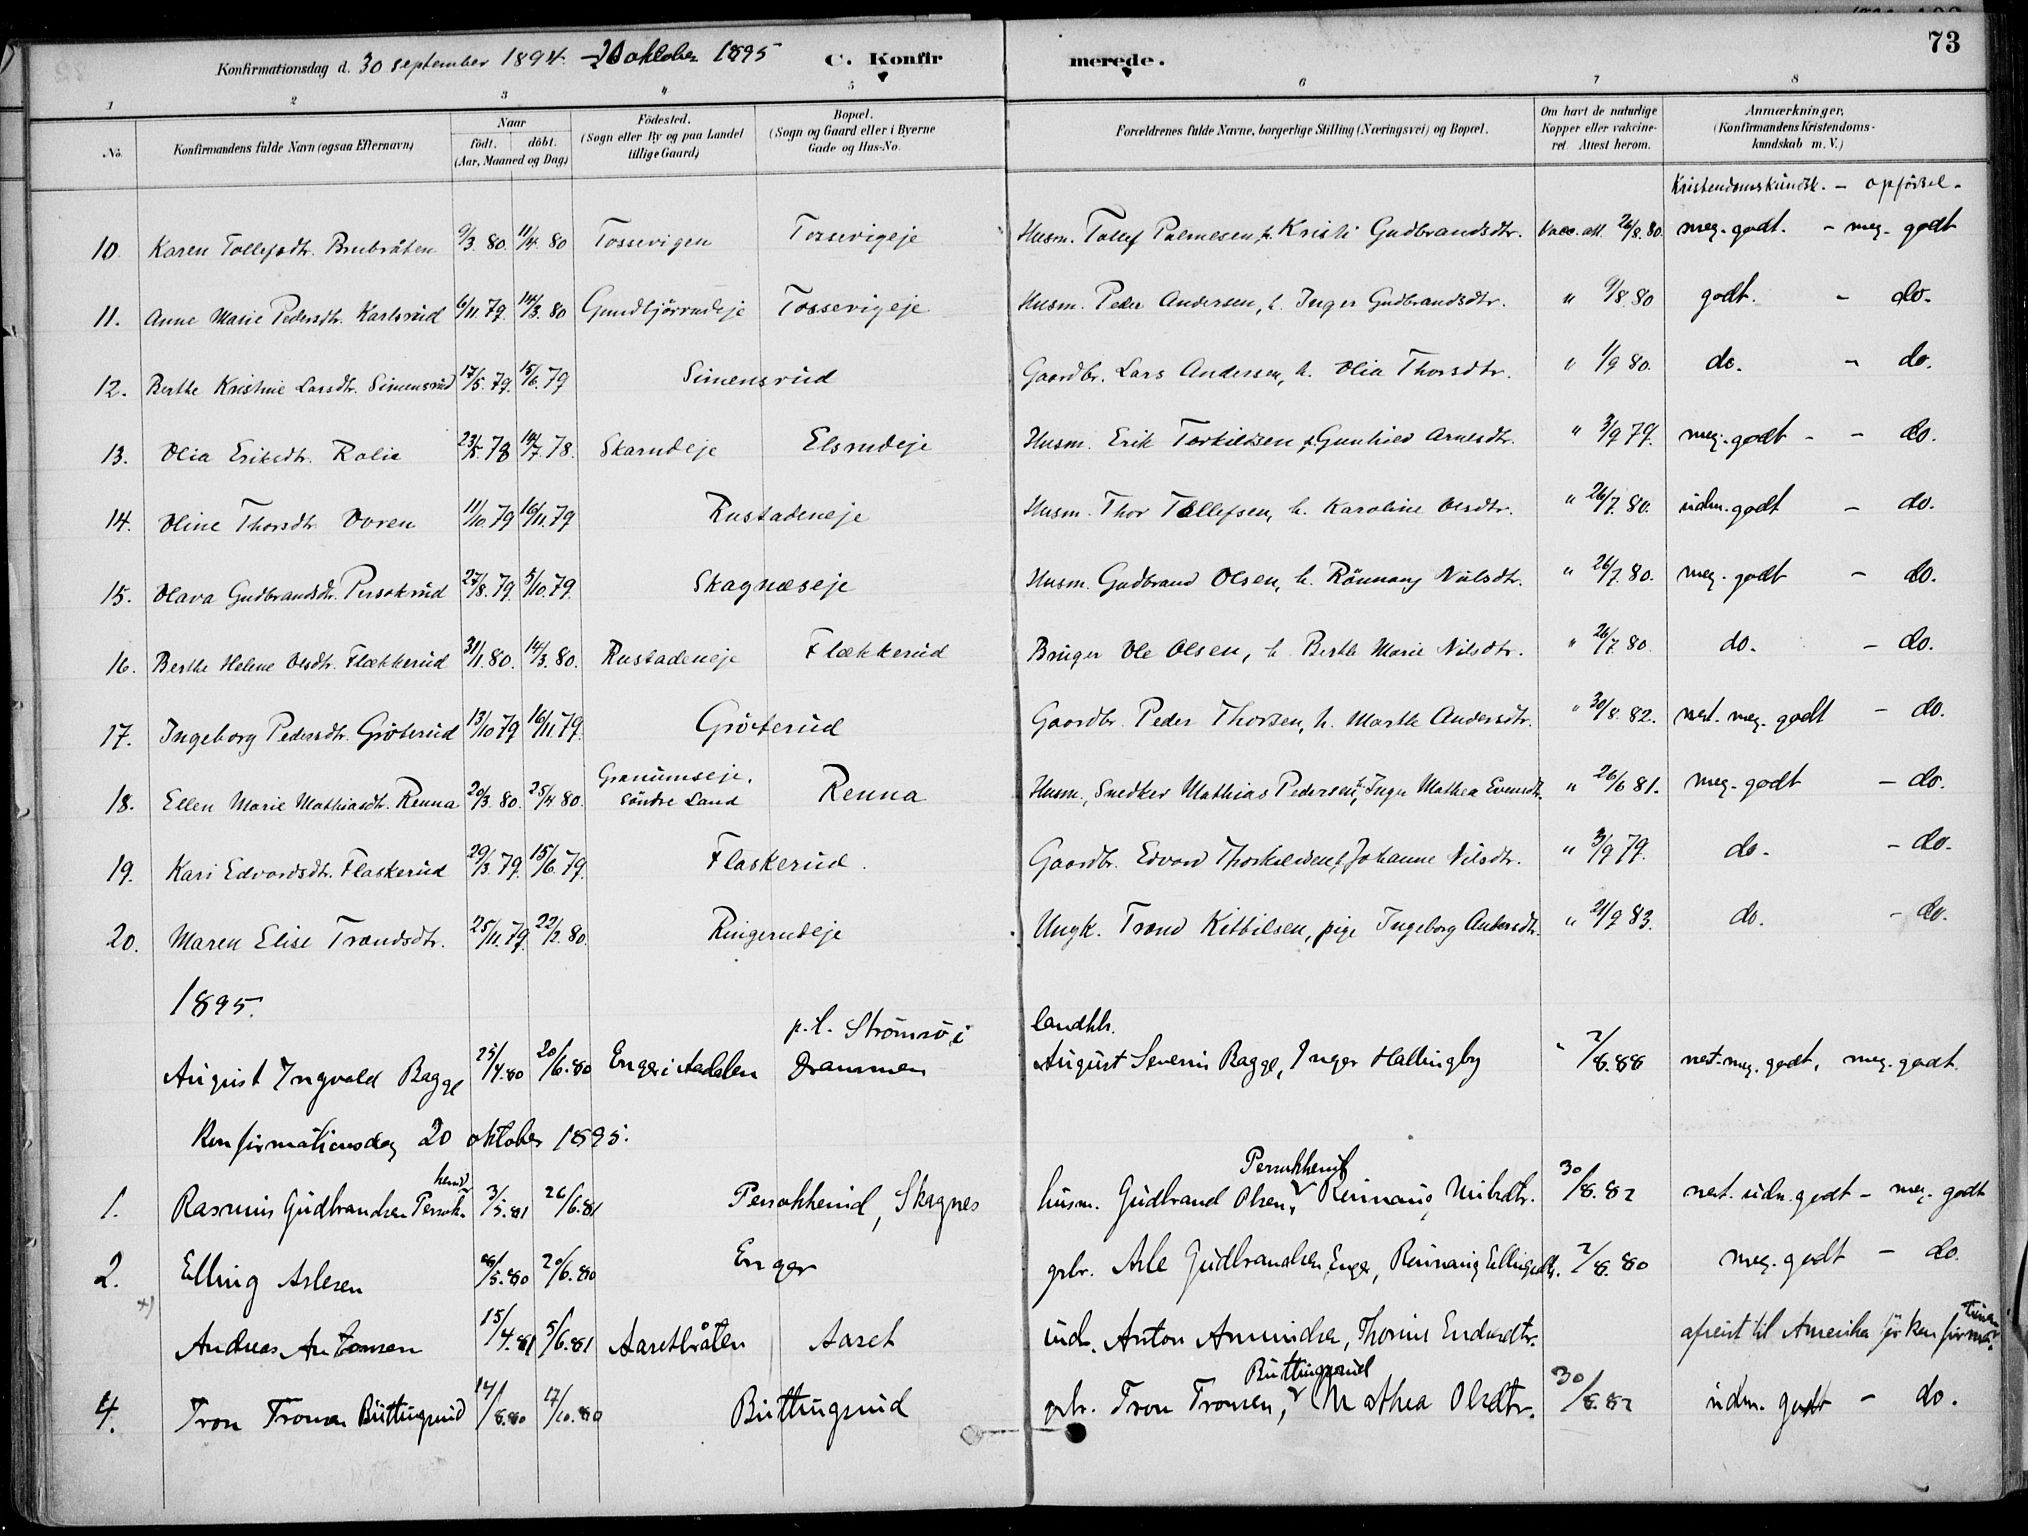 73
Konfirmationsdag d. 30 september 1894 - 20 oktober 1895 C. Konfirmerede.
1 2 3 4 5 6 7 8
No. Konfirmandens fulde Navn (ogsaa Efternavn) Naar født. døbt. (Aar, Maaned og Dag) Fødested. (Sogn eller By og paa Landet tillige Gaard) Bopæl. (Sogn og Gaard eller i Byerne Gade og Hus-No. Forældrenes fulde Navne, borgerlige Stilling (Næringsvei) og Bopæl. Om havt de naturlige Kopper eller vakcineret. Attest herom. Anmærkninger, (Konfirmandens Kristendomskundskab m. V.)
Kristendomskundsk. - opførsel -
10. Karen Tollefsdtr. Brubråten 9/3.80. 11/4.80 Tossevigen Tossevigeje Husm. Tollef Palmesen, h. Kristi Gudbrandsdtr. Vacc. att. 26/8.80. meg. godt. - meg. godt
11. Anne Marie Pedersdtr. Karlsrud 6/11.79. 14/3.80 Gundbjørrudeje Tossevigeje Husm. Peder Andersen, h. Inger Gudbrandsdtr. " 9/8.80 godt. - do.
12. Berthe Kristine Larsdtr. Simensrud 17/5.79. 15/6.79 Simensrud Gaardbr. Lars Andersen, h. Olia Thorsdtr. " 1/9 80. do. - do.
13. Olia Eriksdtr. Rolia 23/5.78 14/7.78. Skarudeje Elsrudeje Husm. Erik Torkildsen, h. Gunhild Arnesdtr. " 3/9 79. meg. godt - - do.
14. Oline Thorsdtr. Voren 11/10.79 16/11.79 Rustadeneje Husm. Thor Tollefsen, h. Karoline Olsdtr. " 26/7.80. udm. godt - do.
15. Olava Gudbrandsdtr. Persokrud 27/8.79. 5/10.79. Skagnæseje Husm. Gudbrand Olsen, h. Rønnaug Nilsdtr. " 26/7.80. meg. godt - do.
16. Berthe Helene Olsdtr. Flækkerud 31/1.80. 14/3.80. Rustadeneje Flækkerud Bruger Ole Olsen, h. Berthe Marie Nilsdtr. " 26/7.80. do. - do.
17. Ingeborg Pedersdtr. Grøterud 13/10 79 16/11.79. Grøterud Gaardbr. Peder Thorsen, h. Marthe Andersdtr. " 30/8.82. nest. meg. godt - do.
18. Ellen Marie Mathiasdtr. Renna 20/3.80. 25/4 80. Granumseje, søndre Land Renna Husm., Snedker Mathias Pedersen, h. Inger Mathea Evensdtr. " 26/6 81. meg. godt - do.
19. Kari Edvardsdtr. Flaskerud 29/3.79. 15/6.79. Flaskerud. Gaardbr. Edvard Thorkildsen, h. Johanne Nilsdtr. " 3/9 79. do. - do.
20. Maren Elise Trondsdtr. 25/11.79. 22/2.80. Ringerudeje Ungk. Trond Kittilsen, pige Ingeborg Andersdtr. " 21/9 83. do. - do.
1895.
August Ingvald Bagge 25/4.80 20/6.80 Enger i Aadalen p.t. Strømsø i Drammen landhdr. August Severin Bagge, Inger Hallingby " 2/8.88 nest. meg. godt, meg. godt.
Konfirmationsdag 20 oktober 1895.
1. Rasmus Gudbrandsen Persokkerud 3/5.81 26/6.81 Persokkerud, Skagnes husm. Gudbrand Olsen Persokkerud, Rønnaug Nilsdtr. 30/8.82 nest. udm. godt - meg. godt
2. Elling Arlesen /5.80 20/6.80 Enger gbr. Arle Gudbrandsen Enger, Rønnaug Ellingsdtr. 2/8.80 meg. godt - do.
x) Andreas Antonsen 15/4.81 5/6.81 Aasetbråten Aaset inds. Anton Amundsen, Thorine Endresdtr. afreist til Amerika før konfirmationen.
4. Tron Tronsen Buttingsrud 14/8.80 17/10.80 Buttingsrud gbr. Tron Tronsen Buttingsrud, Mathea Olsdtr. 30/8.82 udm. godt - do.